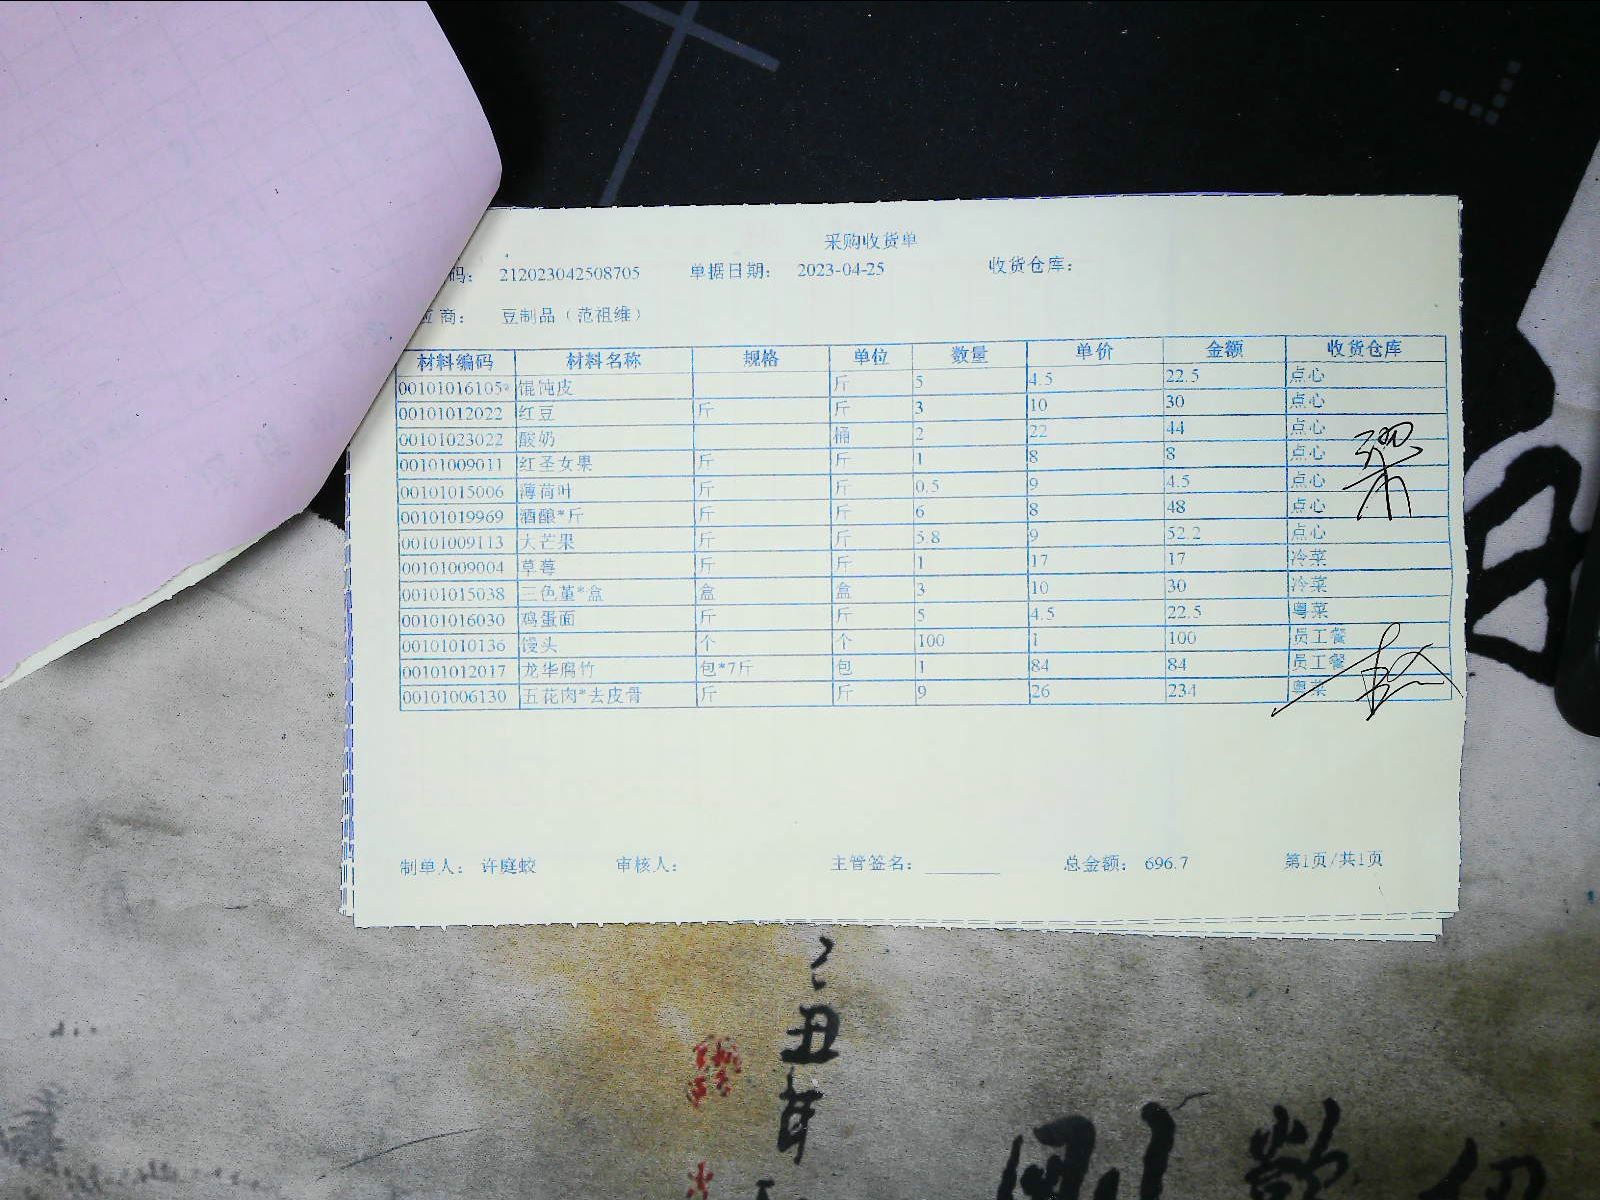 采购收货单
码： 212023042508705 单据日期： 2023-04-25 收货仓库：
应商： 豆制品（范祖维）
材料编码 材料名称 规格 单位 数量 单价 金额 收货仓库
00101016105* 馄饨皮 斤 5 4.5 22.5 点心
00101012022 红豆 斤 斤 3 10 30 点心
00101023022 酸奶 桶 2 22 44 点心
00101009011 红圣女果 斤 斤 1 8 8 点心
00101015006 薄荷叶 斤 斤 0.5 9 4.5 点心
00101019969 酒酿*斤 斤 斤 6 8 48 点心
00101009113 大芒果 斤 斤 5.8 9 52.2 点心
00101009004 草莓 斤 斤 1 17 17 冷菜
00101015038 三色堇*盒 盒 盒 3 10 30 冷菜
00101016030 鸡蛋面 斤 斤 5 4.5 22.5 粤菜
00101010136 馒头 个 个 100 1 100 员工餐
00101012017 龙华腐竹 包*7斤 包 1 84 84 员工餐
00101006130 五花肉*去皮骨 斤 斤 9 26 234 粤菜
制单人： 许庭蛟 审核人： 主管签名： 总金额： 696.7 第1页/共1页
丑年